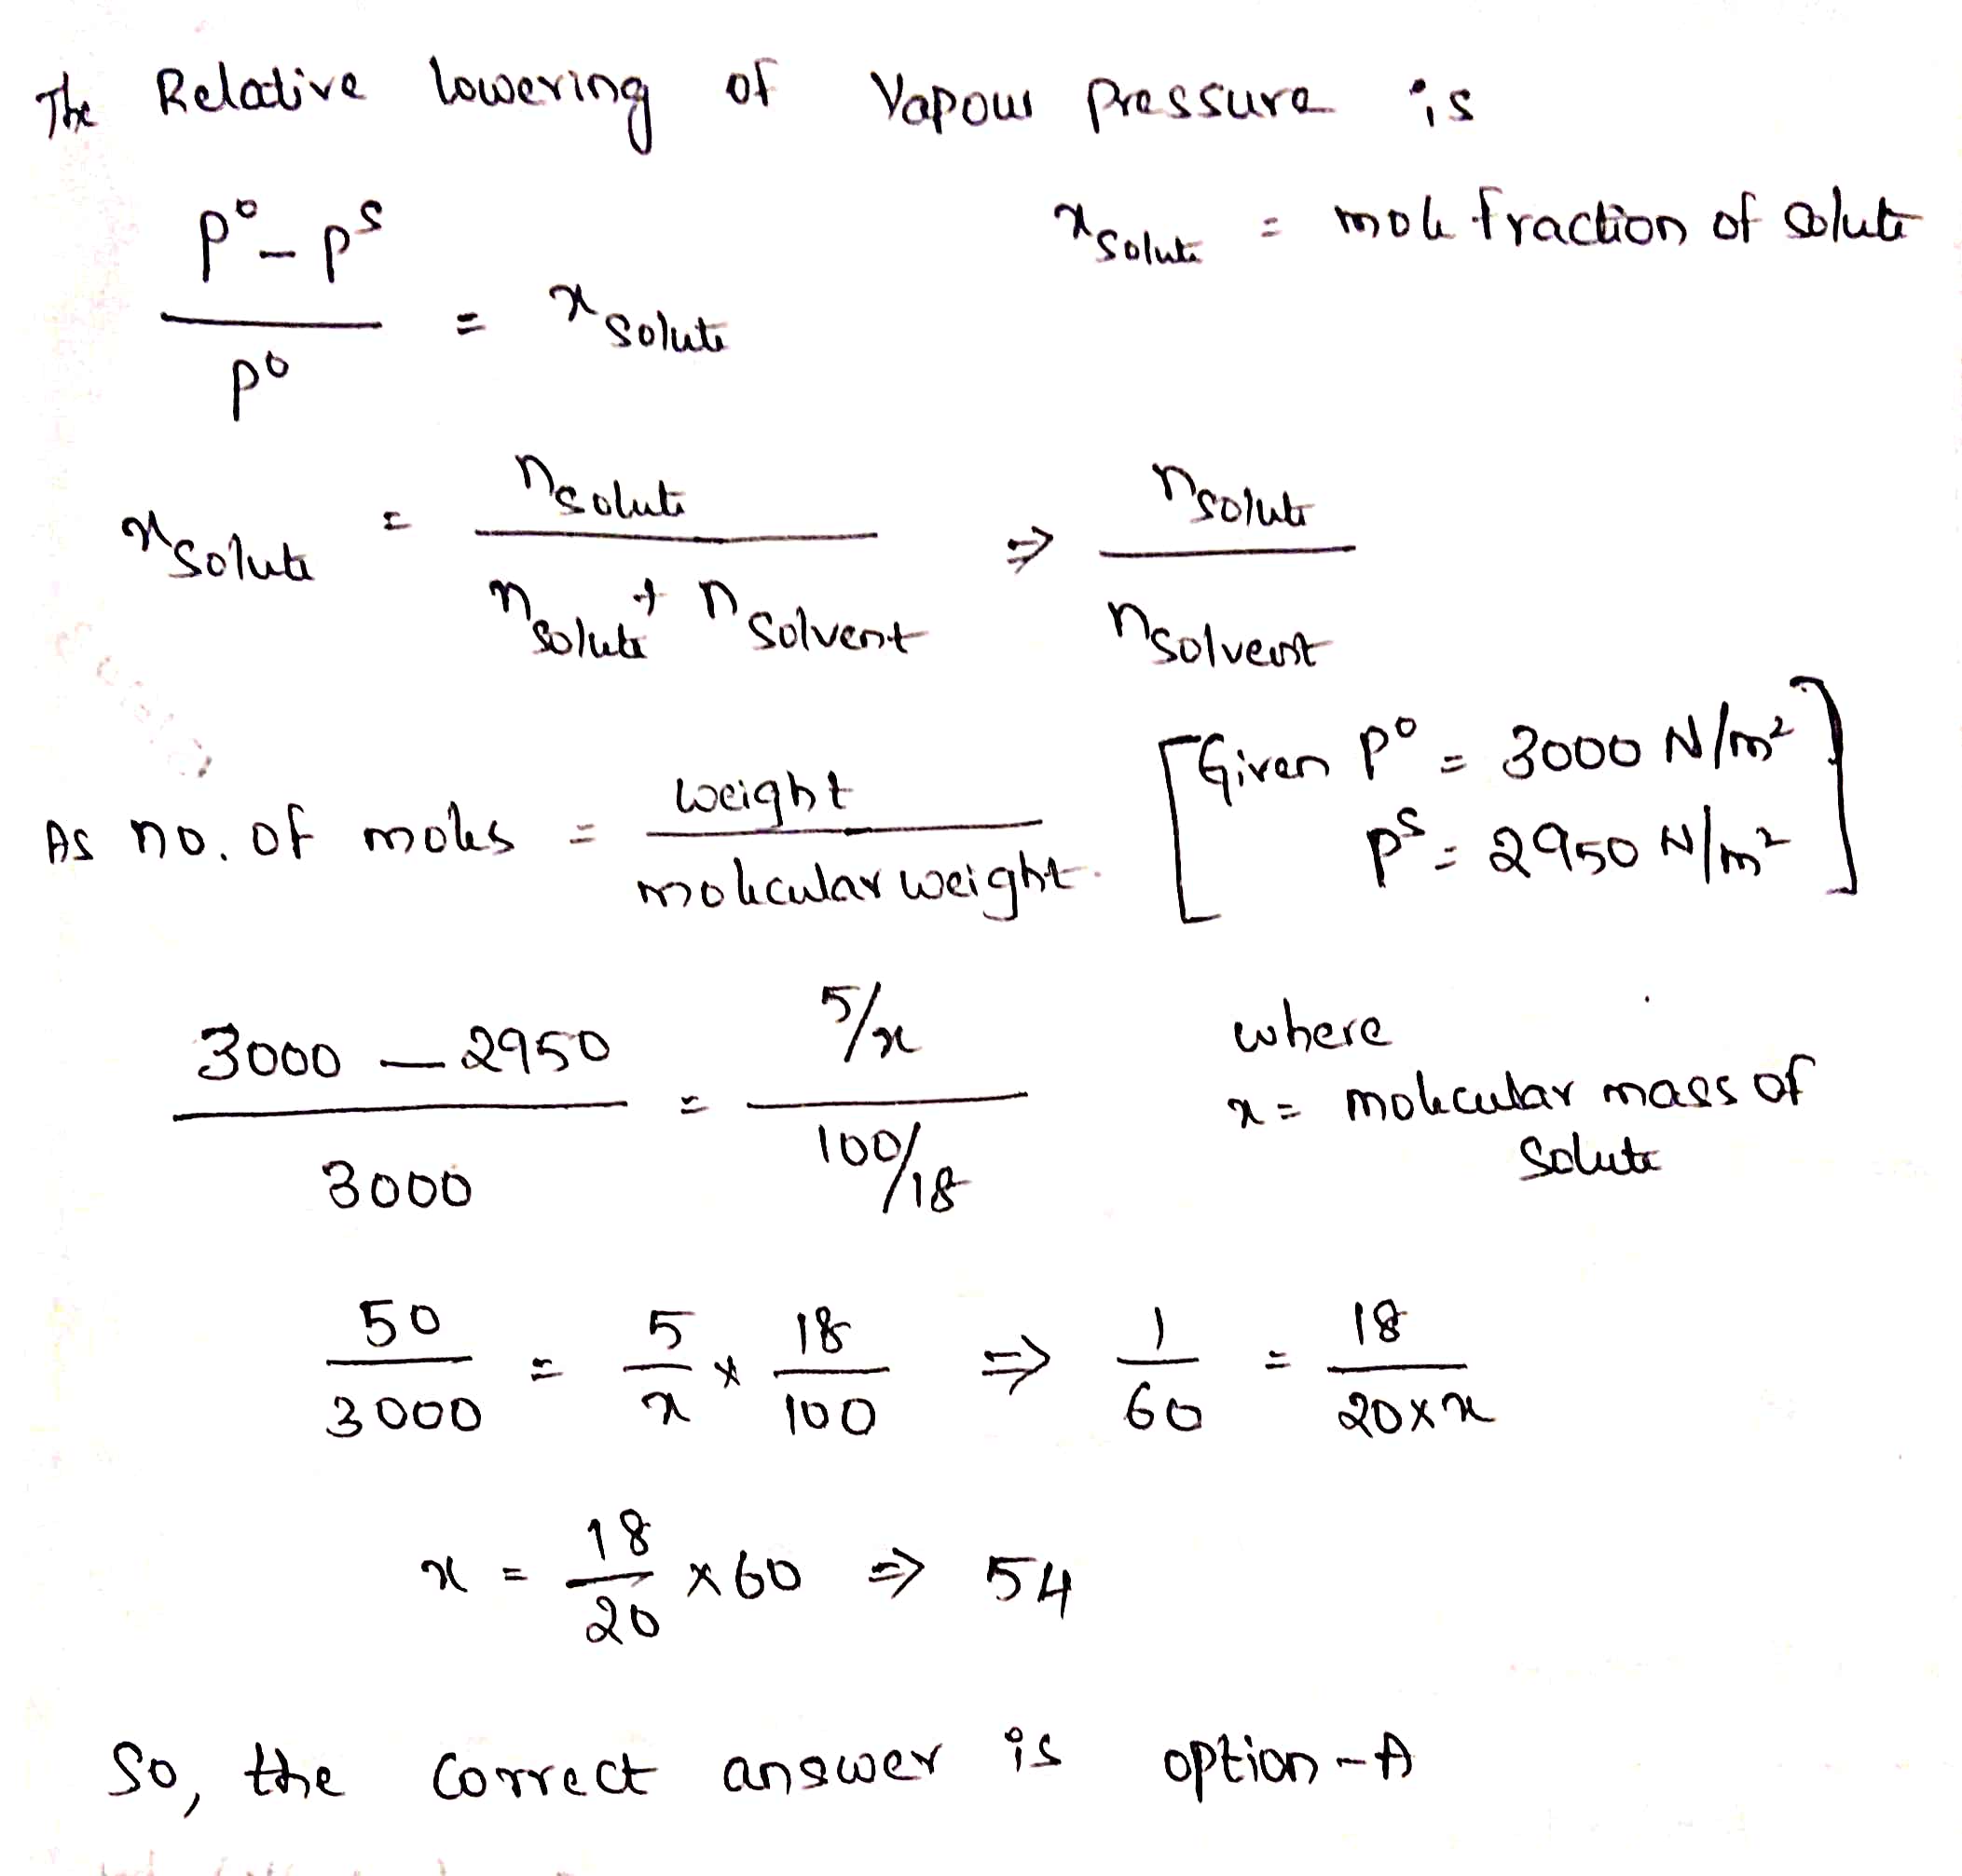 The Relative lowering of Vapour Pressure is
p° - pˢ / p° = x solute
x solute = mole fraction of solute
x solute = n solute / n solute + n solvent ⇒ n solute / n solvent
As no. of moles = weight / molecular weight.
[Given p° = 3000 N/m²
pˢ = 2950 N/m²]
3000 - 2950 / 3000 = 5/x / 100/18
where
x = molecular mass of
solute
50/3000 = 5/x × 18/100 ⇒ 1/60 = 18/20×x
x = 18/20 ×60 ⇒ 54
So, the correct answer is option-A